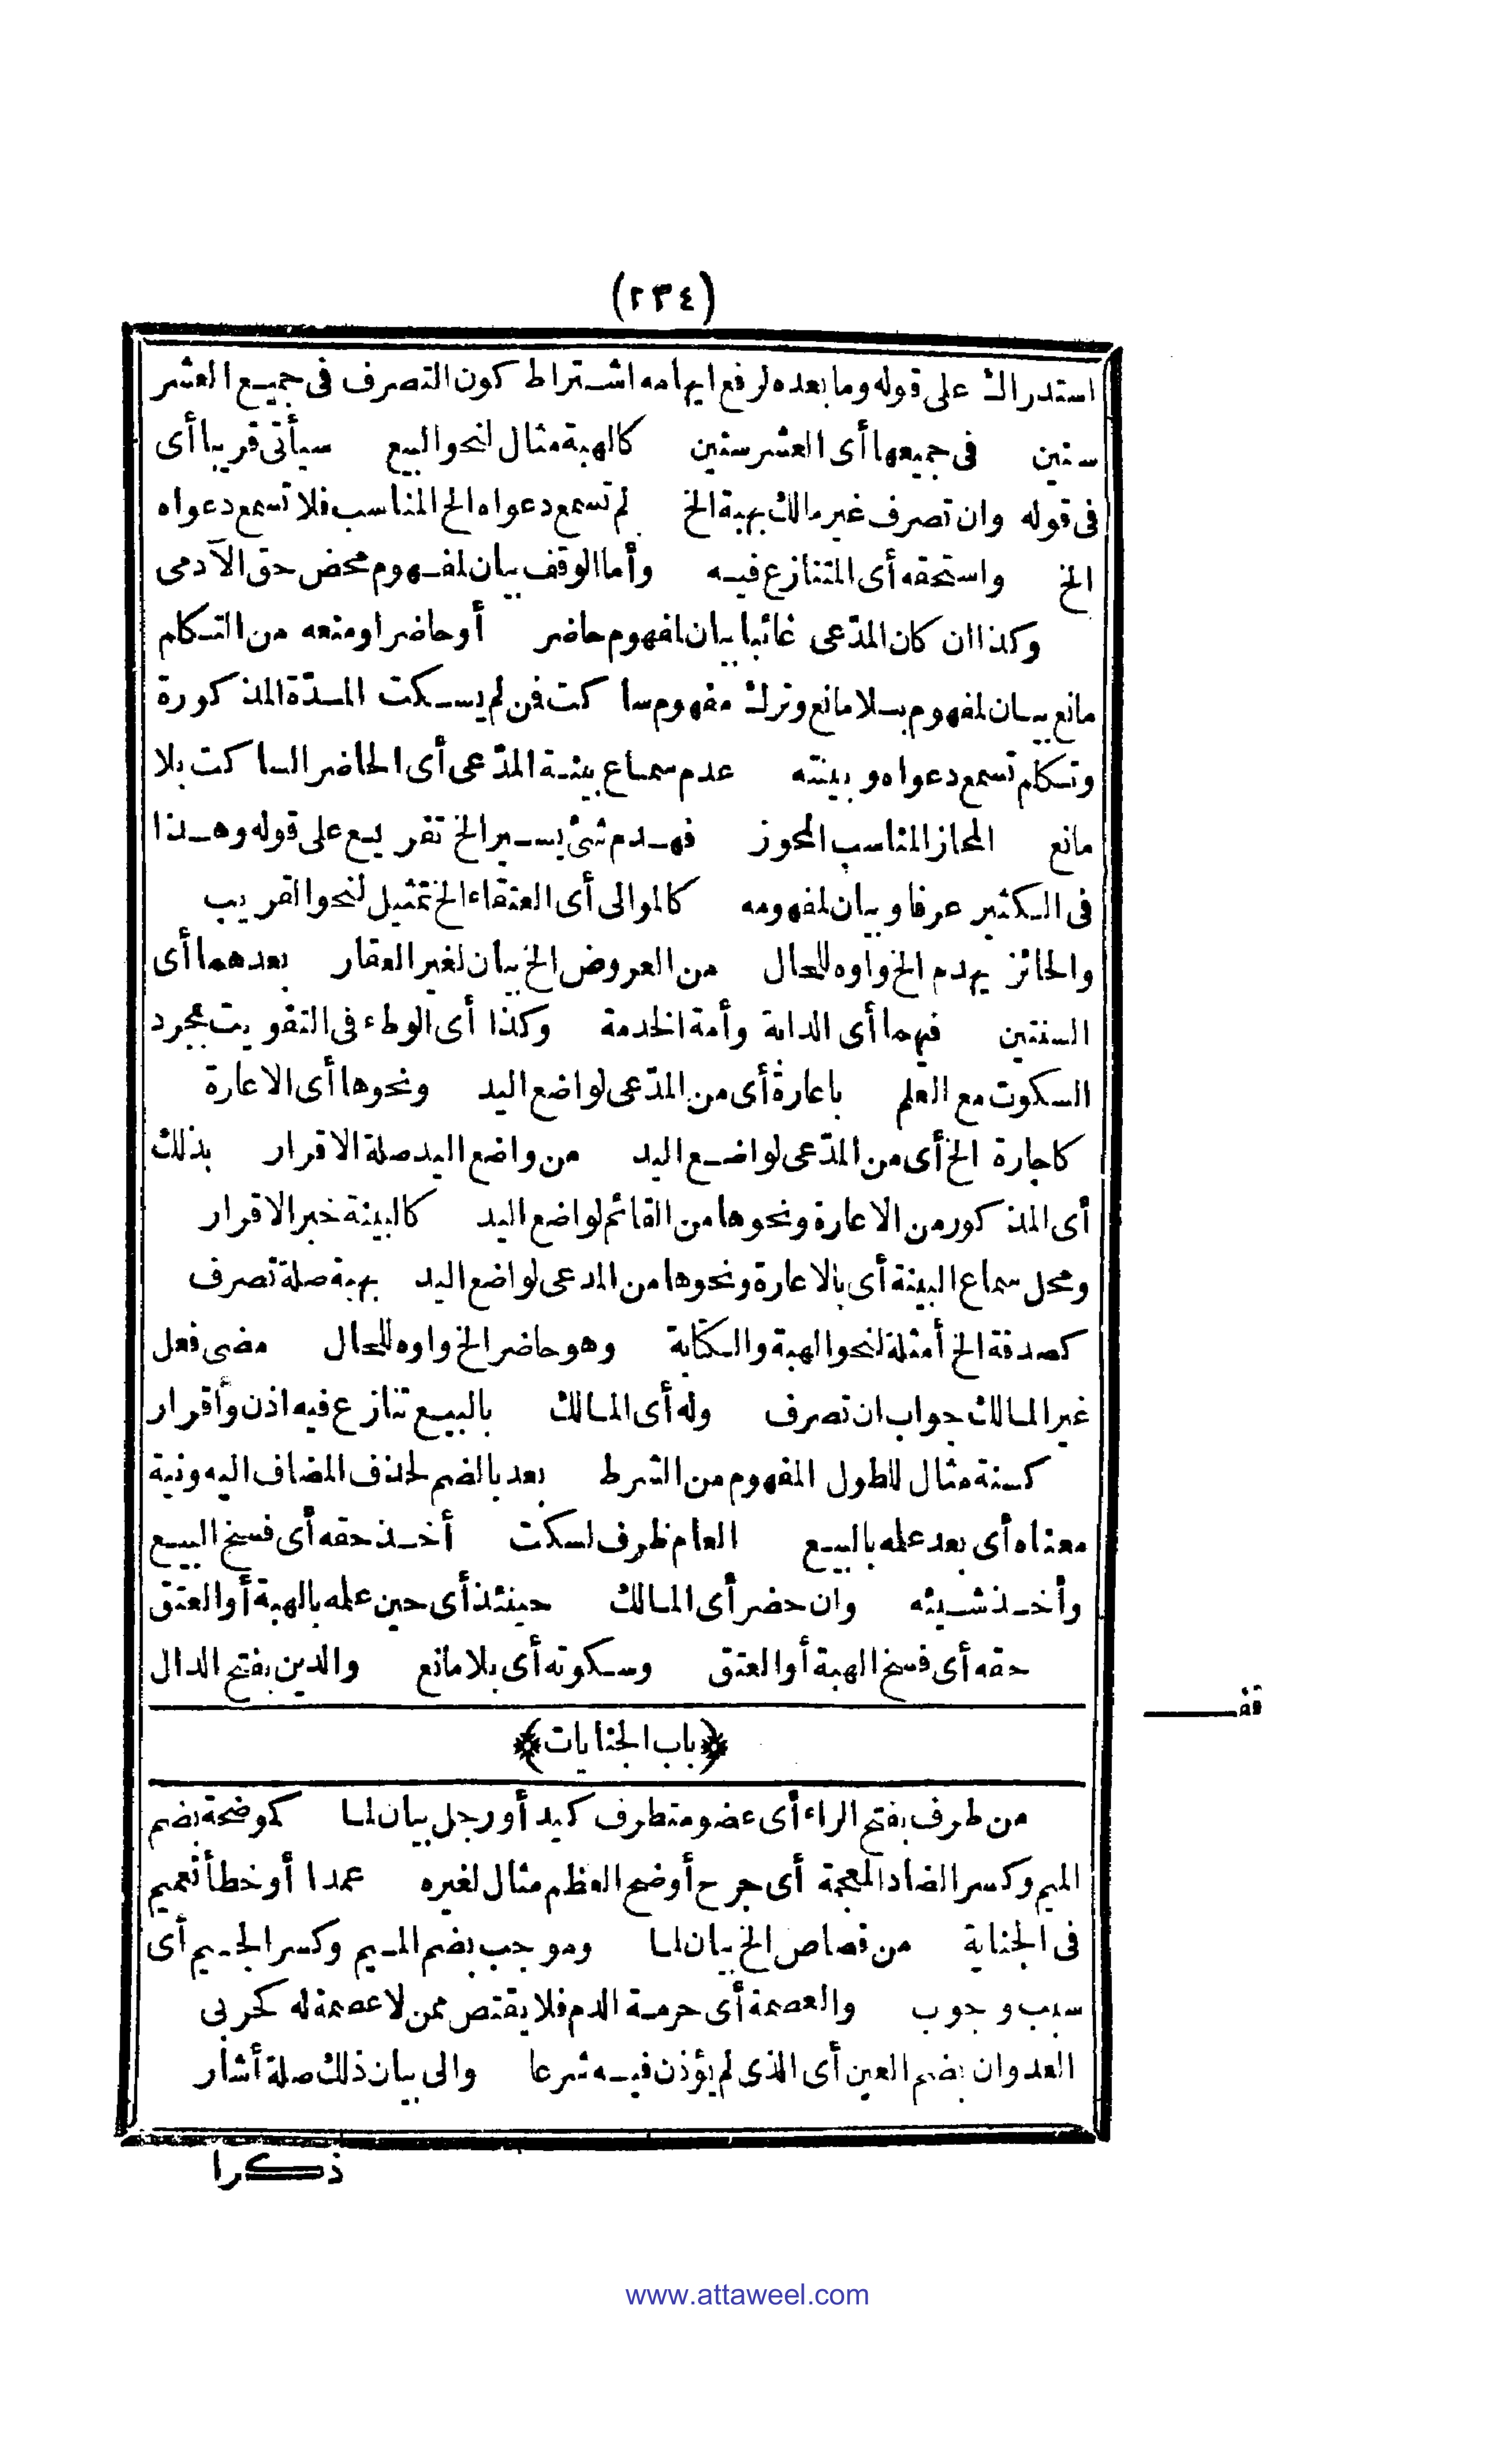 (٢٣٤)
استدراك على قوله وما بعده لرفع ايهامه اشتراط كون التصرف فى جميع العشر
سنين فى جميعها أى العشر سنين كالهبة مثال لنحو البيع سيأتى قريبا أى
فى قوله وان تصرف غير مالك بهبة الخ لم تسمع دعواه الخ المناسب فلا تسمع دعواه
الخ واستحقه أى المتنازع فيه وأما الوقف بيان لمفهوم محض حق الآدمى
وكذا ان كان المدّعى غائبا بيان لمفهوم حاضر أو حاضرا ومنعه من التكلم
مانع بيان لمفهوم بلا مانع وترك مفهوم ساكت فن لم يسكت المدّة المذكورة
وتكلم تسمع دعواه وبينته عدم سماع بينة المدّعى أى الحاضر الساكت بلا
مانع المحاز المناسب المحوز فهدم شئ يسير الخ تفريع على قوله وهذا
فى الكثير عرفا وبيان لمفهومه كالموالى أى العتقاء الخ تمثيل لنحو القريب
والحائز يهدم الخ واوه للحال من العروض الخ بيان لغير العقار بعدهما أى
السنتين فيهما أى الدابة وأمة الخدمة وكذا أى الوطء فى التفويت بمجرد
السكوت مع العلم باعارة أى من المدّعى لواضع اليد ونحوها أى الاعارة
كاجارة الخ أى من المدّعى لواضع اليد من واضع اليد صلة الاقرار بذلك
أى المذكور من الاعارة ونحوها من القائم لواضع اليد كالبينة خبر الاقرار
ومحل سماع البينة أى بالاعارة ونحوها من المدعى لواضع اليد بهبة صلة تصرف
كصدقة الخ أمثلة لنحو الهبة والكتابة وهو حاضر الخ واوه للحال مضى فعل
غير المالك جواب ان تصرف وله أى المالك بالبيع تنازع فيه اذن وأقرار
كسنة مثال للطول المفهوم من الشرط بعد بالضم لحذف المضاف اليه ونية
معناه أى بعد علمه بالبيع العام ظرف لسكت أخذ حقه أى فسخ البيع
وأخذ شيئه وان حضر أى المالك حينئذ أى حين علمه بالهبة أو العتق
حقه أى فسخ الهبة أو العتق وسكوته أى بلا مانع والدين بفتح الدال
قف
﴿باب الجنايات﴾
من طرف بفتح الراء أى عضو متطرف كيد أو رجل بيان لما كموضحة بضم
الميم وكسر الضاد المعجمة أى جرح أوضح العظم مثال لغيره عمدا أو خطأ تعميم
فى الجناية من قصاص الخ بيان لما وموجب بضم الميم وكسر الجيم أى
سبب وجوب والعصمة أى حرمة الدم فلا يقتص ممن لا عصمة له كحربى
العدوان بضم العين أى الذى لم يؤذن فيه شرعا والى بيان ذلك صلة أشار
ذكرا
www.attaweel.com